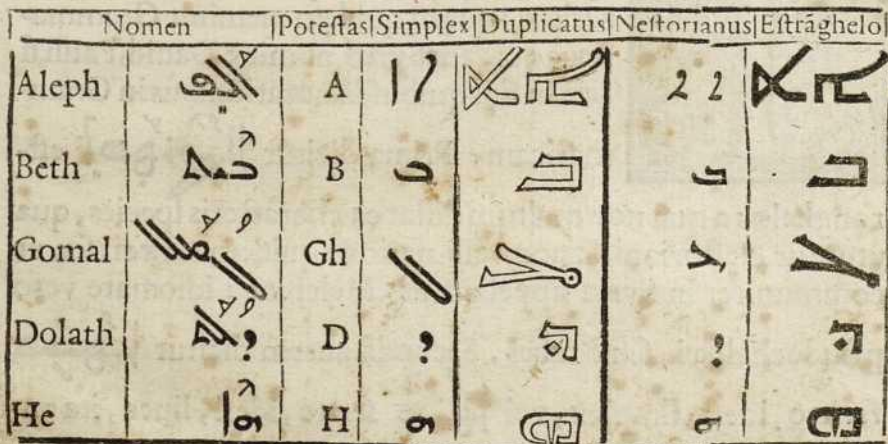 Nomen Poteſtas Simplex Duplicatus Neſtorianus Eſtrãghelo
Aleph A ܐ ܐ ܐ ܐ
Beth ܒܶܝܬ B ܒ ܒ ܒ ܒ
Gomal ܓܳܡܰܠ Gh ܓ ܓ ܓ ܓ
Dolath ܕܳܠܰܬ D ܕ ܕ ܕ ܕ
He ܗܶܐ H ܗ ܗ ܗ ܗ